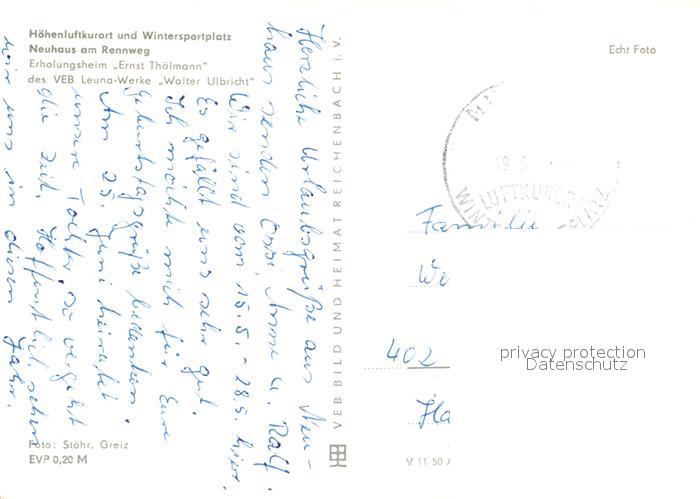 Höhenluftkurort und Wintersportplatz
Neuhaus am Rennweg
Erholungsheim „Ernst Thälmann"
des VEB Leuna-Werke „Walter Ulbricht"
Echt Foto
Herzliche Urlaubsgrüße aus Neu-
haus senden Ossi, Anne u. Ralf.
Wir sind vom 15.5. - 28.5. hier.
Es gefällt uns sehr gut.
Ich möchte mich für Eure
Geburtstagsgrüße bedanken.
Am 25. Juni heiratet
unsere Tochter. So vergeht
die Zeit. Hoffentlich sehen
wir uns in diesem Jahr.
VEB BILD UND HEIMAT REICHENBACH i. V.
19.5
LUFTKURORT
WINT PLATZ
Familie
We
402
Ha
privacy protection
Datenschutz
Foto: Stöhr, Greiz
EVP 0,20 M
V 11 50 A